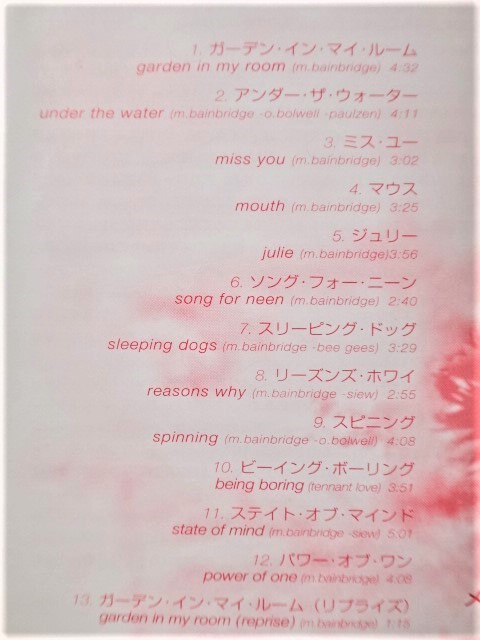 1. ガーデン・イン・マイ・ルーム
garden in my room (m.bainbridge) 4:32
2. アンダー・ザ・ウォーター
under the water (m.bainbridge -o.bolwell -paulzen) 4:11
3. ミス・ユー
miss you (m.bainbridge) 3:02
4. マウス
mouth (m.bainbridge) 3:25
5. ジュリー
julie (m.bainbridge)3:56
6. ソング・フォー・ニーン
song for neen (m.bainbridge) 2:40
7. スリーピング・ドッグ
sleeping dogs (m.bainbridge -bee gees) 3:29
8. リーズンズ・ホワイ
reasons why (m.bainbridge -siew) 2:55
9. スピニング
spinning (m.bainbridge -o.bolwell) 4:08
10. ビーイング・ボーリング
being boring (tennant love) 3:51
11. ステイト・オブ・マインド
state of mind (m.bainbridge -siew) 5:01
12. パワー・オブ・ワン
power of one (m.bainbridge) 4:08
13. ガーデン・イン・マイ・ルーム（リプライズ）
garden in my room (reprise) (m.bainbridge) 1:15